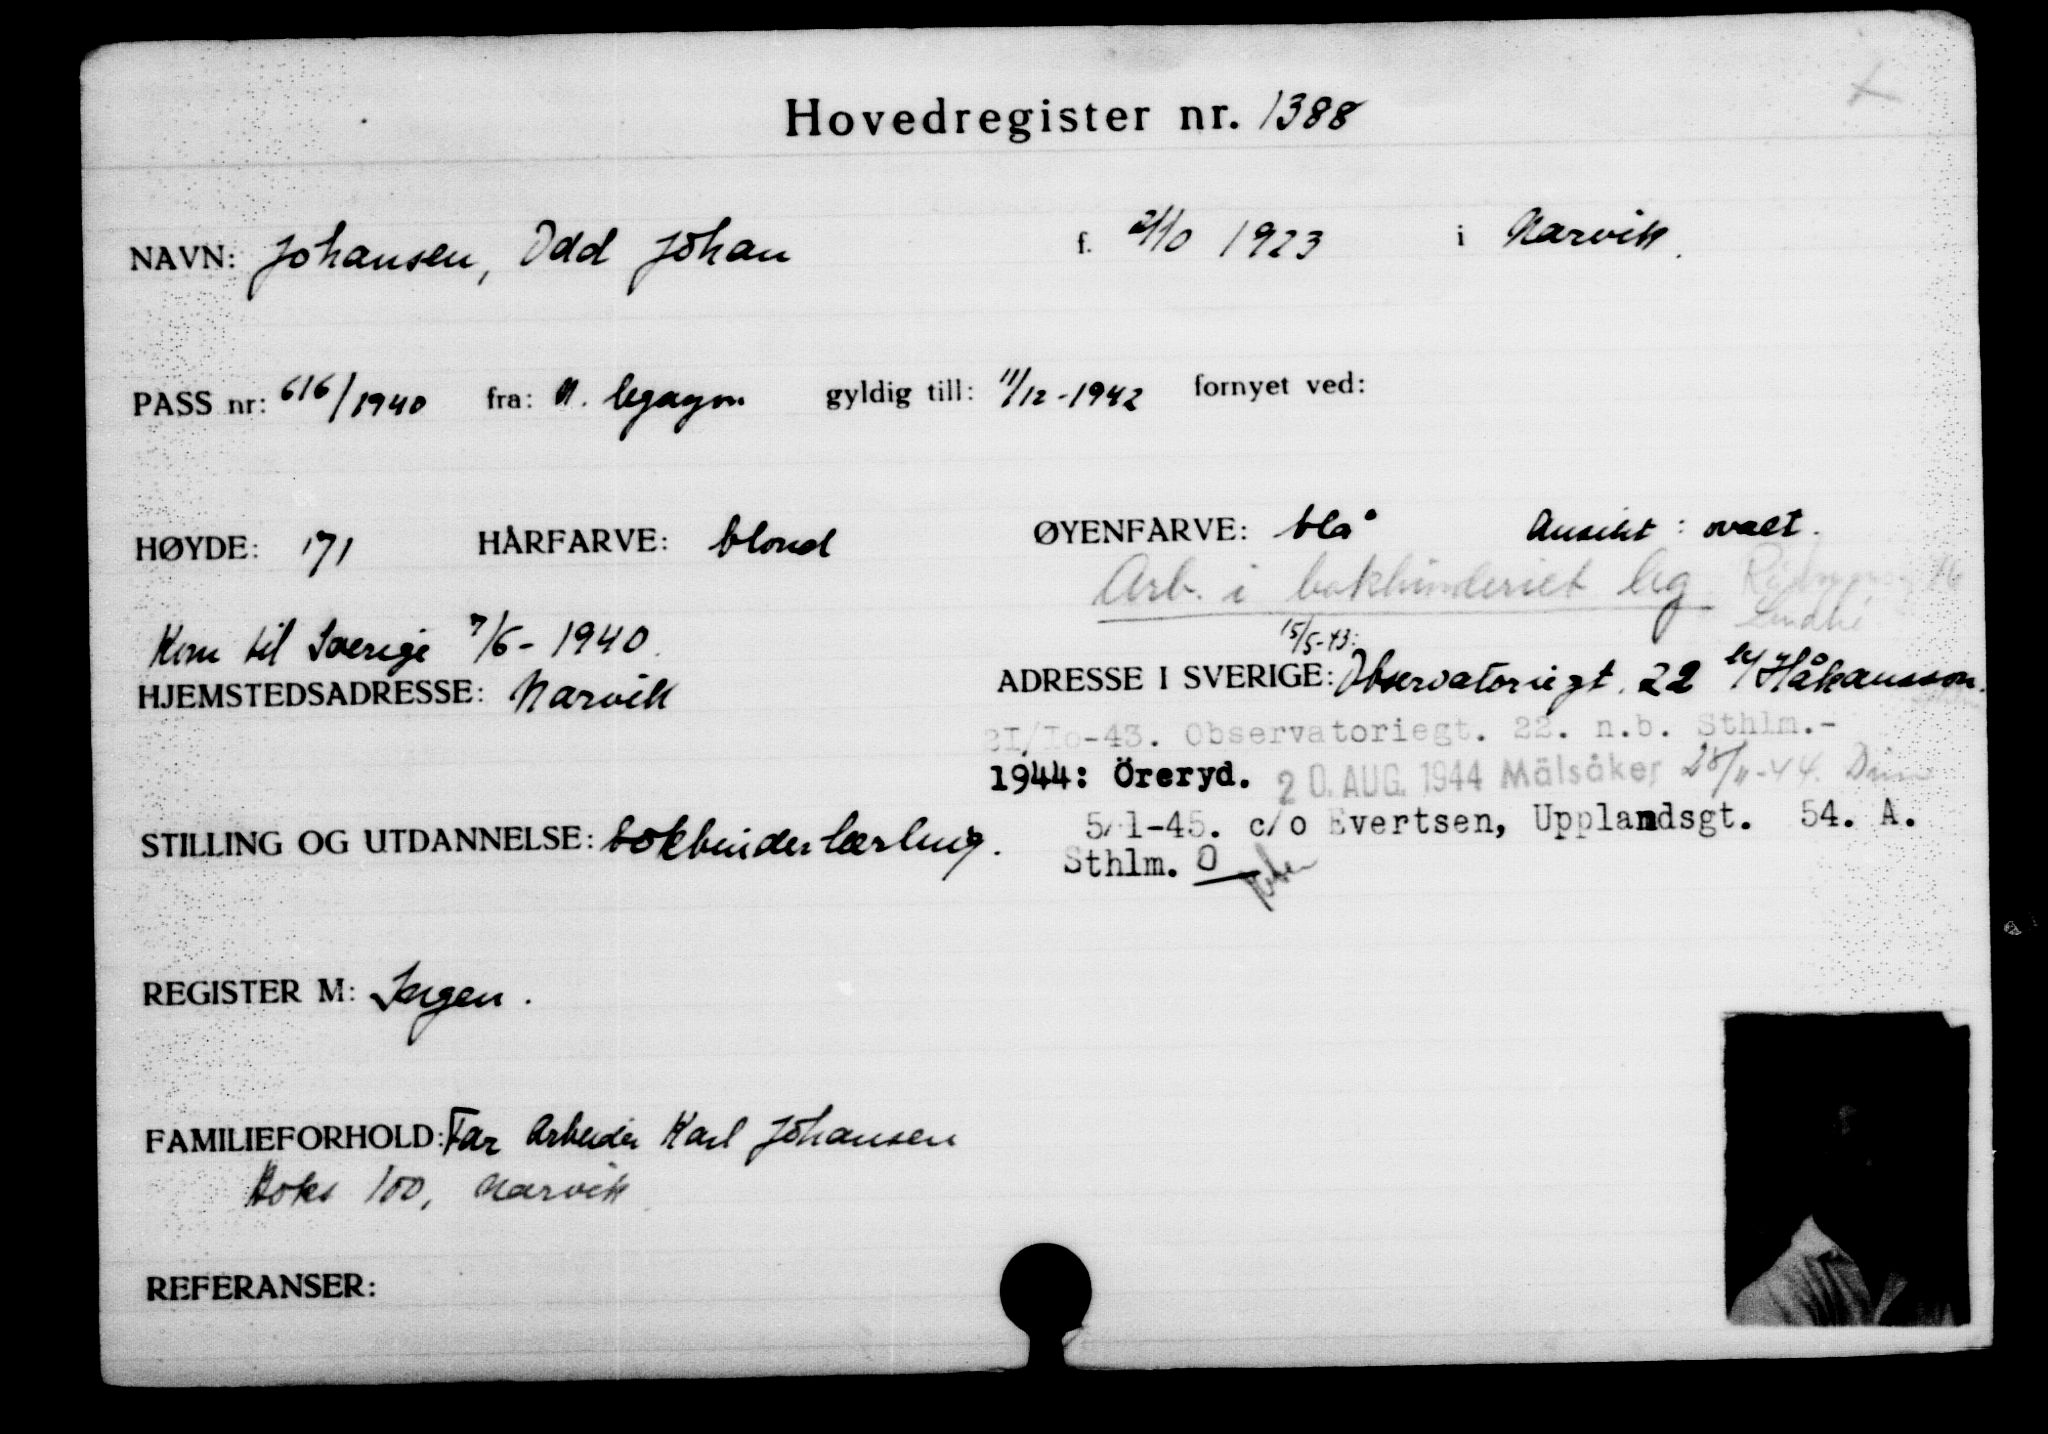 Hovedregister nr. 1388
NAVN: Johansen, Odd Johan f. 21/10 1923 i Narvik.
PASS nr: 616/1940 fra: N. legasjon gyldig till: 11/12-1942 fornyet ved:
HØYDE: 171 HÅRFARVE: blond ØYENFARVE: blå Ansikt: ovalt.
Arb. i bokbinderiet leg
Kom til Sverige 7/6-1940. 15/5-43:
HJEMSTEDSADRESSE: Narvik ADRESSE I SVERIGE: Observatoriegt. 22 Håkansson.
21/10-43. Observatoriegt. 22. n.b. Sthlm.-
1944: Öreryd. 20. AUG. 1944 Mälsåker 28/11-44.
5/1-45. c/o Evertsen, Upplandsgt. 54. A.
STILLING OG UTDANNELSE: bokbinderlærling.
Sthlm. O
REGISTER M: Ingen.
FAMILIEFORHOLD: Far Arbeider Karl Johansen
Boks 100, Narvik
REFERANSER: